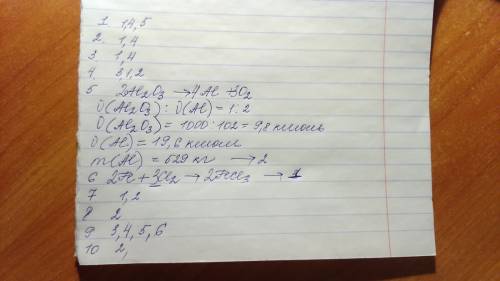 1. 1,4,5
2. 1,4
3. 1,4
4. 3,1,2
5 2Al2O3 → 4Al 3O2
ν(Al2O3) : ν(Al) = 1:2
ν(Al2O3) = 1000 : 102 = 9,8 кмоль
ν(Al) = 19,6 кмоль
m(Al) = 529 кг → 2
6 2Fe + 3Cl2 → 2FeCl3 → 1
7 1,2
8 2
9 3,4,5,6
10 2,